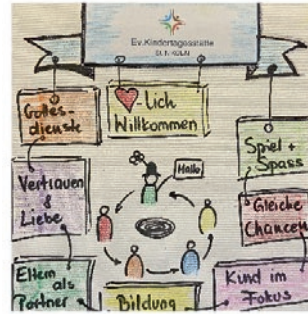 Ev. Kindertagesstätte
Gottes-
dienste
♥lich
Willkommen
Spiel +
Spass
Hallo
Vertrauen
&
Liebe
Gleiche
Chancen
Eltern als
Partner
Bildung
Kind im
Fokus